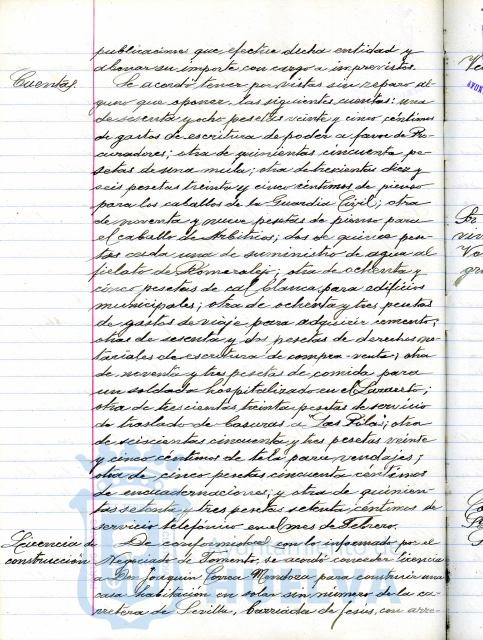 publicaciones que efectue dicha entidad y
abonar su importe con cargo a imprevistos.
Cuentas.
Se acordó tener por vistas sin reparo al-
guno que oponer, las siguientes cuentas: una
de sesenta y ocho pesetas veinte y cinco céntimos
de gastos de escritura de poder a favor de Pro-
curadores; otra de quinientas cincuenta pe-
setas de una mula; otra de trescientas diez y
seis pesetas treinta y cinco céntimos de pienso
para los caballos de la Guardia Civil; otra
de noventa y nueve pesetas de pienso para
el caballo de Arbitrios; dos de quince pese-
tas cada una de suministro de agua al
fielato de Romeralejo; otra de ochenta y
cinco pesetas de cal blanca para edificios
municipales; otra de ochenta y tres pesetas
de gastos de viaje para adquirir cemento;
otra de sesenta y dos pesetas de derechos no-
tariales de escritura de compra-venta; otra
de noventa y tres pesetas de comida para
un soldado hospitalizado en el Lazareto;
otra de trescientas treinta pesetas de servicio
de traslado de basuras a "Las Pilas"; otra
de seiscientas cincuenta y tres pesetas veinte
y cinco céntimos de tela para vendajes;
otra de cinco pesetas cincuenta céntimos
de encuadernaciones; y otra de quinien-
tas setenta y tres pesetas setenta céntimos de
servicio telefónico en el mes de Febrero.
Licencia de
construcción
De conformidad con lo informado por el
Negociado de Fomento, se acordó conceder licencia
a Don Joaquin Correa Mendoza para construir una
casa habitación en solar sin número de la ca-
rretera de Sevilla, barriada de Jesús, con arre-